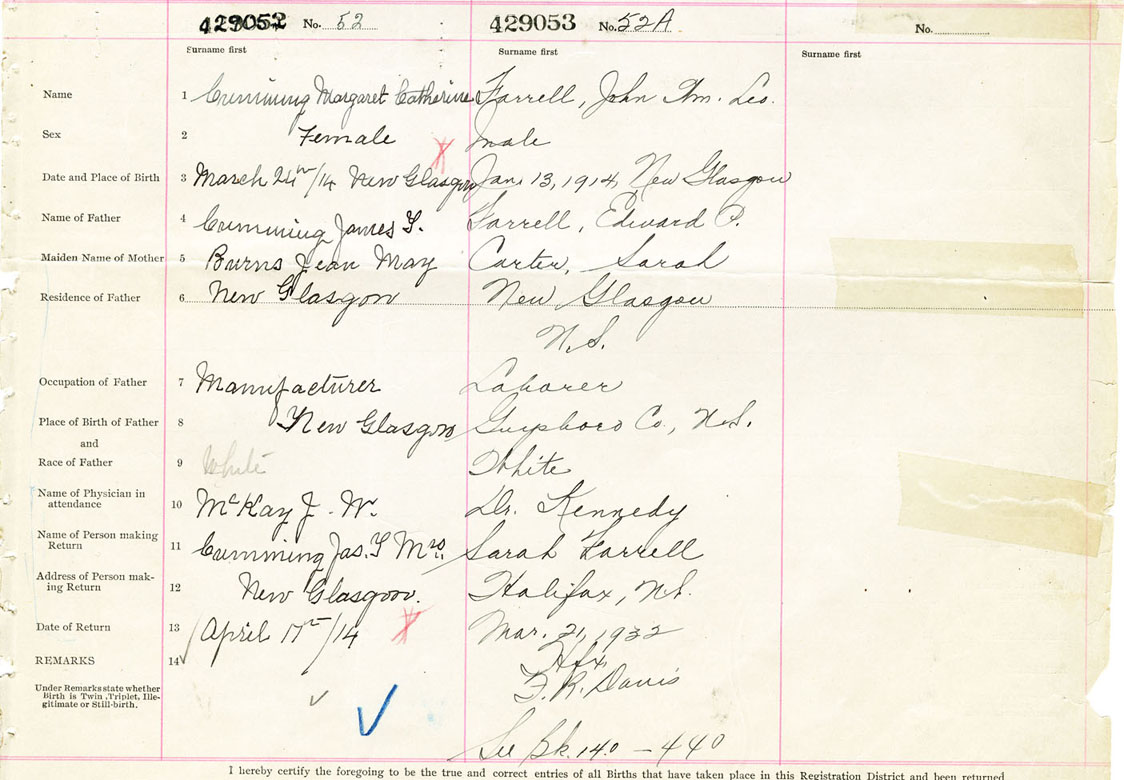 429052 No. 52 429053 No. 52A No.
Surname first Surname first Surname first
Name 1 Cumming Margaret Catherine Farrell, John Wm. Leo.
Sex 2 Female male
Date and Place of Birth 3 March 24th/14 New Glasgow Jan. 13, 1914, New Glasgow
Name of Father 4 Cumming James F. Farrell, Edward P.
Maiden Name of Mother 5 Burns Jean May Carter, Sarah
Residence of Father 6 New Glasgow New Glasgow
N.S.
Occupation of Father 7 Manufacturer Laborer
Place of Birth of Father 8 New Glasgow Guysboro Co., N.S.
and
Race of Father 9 White White
Name of Physician in
attendance 10 McKay J. W. Dr. Kennedy
Name of Person making
Return 11 Cumming Jas. F Mrs. Sarah Farrell
Address of Person mak-
ing Return 12 New Glasgow. Halifax, N.S.
Date of Return 13 April 17th/14 Mar. 21, 1932
REMARKS 14 Hfx.
F. R. Davis
Under Remarks state whether
Birth is Twin, Triplet, Ille-
gitimate or Still-birth.
See Bk. 140 - 440
I hereby certify the foregoing to be the true and correct entries of all Births that have taken place in this Registration District and been returned